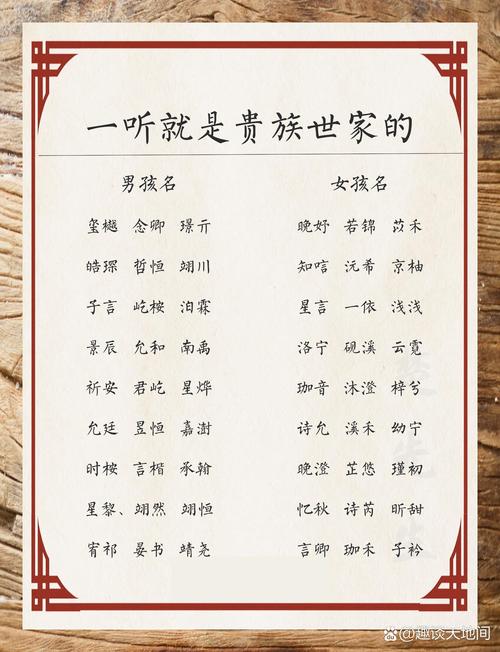 一听就是贵族世家的
男孩名 女孩名
玺樾 念卿 璟亓 晚妤 若锦 苡禾
皓琛 哲恒 翊川 知唁 沅希 京柚
子言 屹桉 泊霖 星言 一依 浅浅
景辰 允和 南禹 洛宁 砚溪 云霓
祈安 君屹 星烨 珈音 沐澄 梓兮
允廷 昱恒 嘉澍 诗允 溪禾 幼宁
时桉 言楷 承翰 晚澄 芷悠 瑾初
星黎、翊然 翊恒 忆秋 诗芮 昕甜
宥祁 晏书 靖尧 言卿 珈禾 子衿
@趣谈天地间